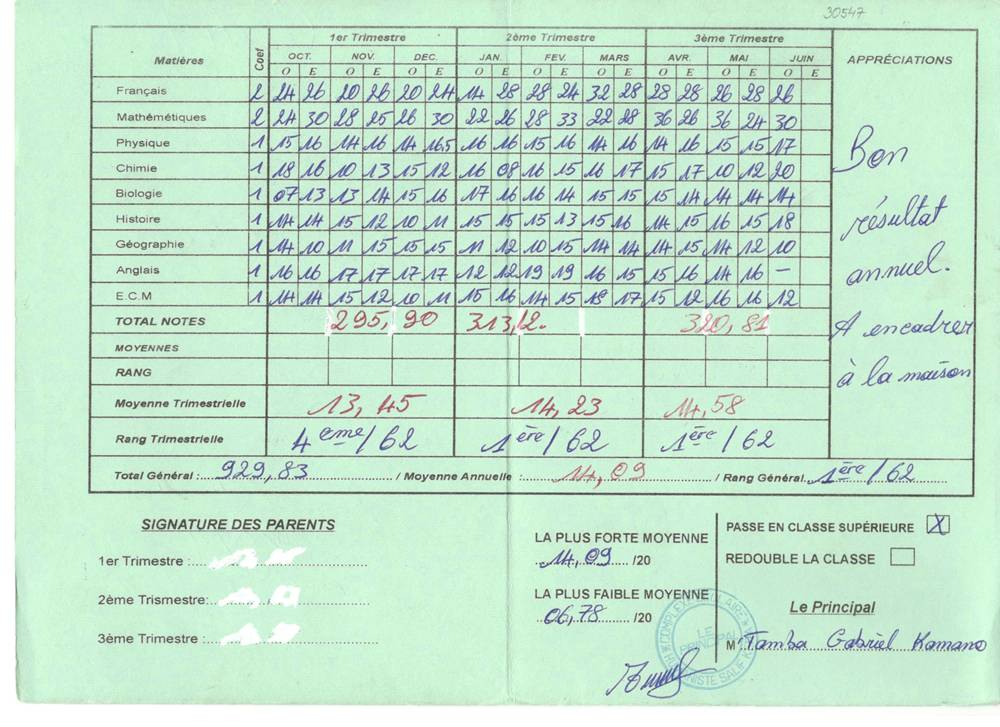 30547
1er Trimestre 2ème Trimestre 3ème Trimestre
Matières Coef OCT. NOV. DEC. JAN. FEV. MARS AVR. MAI JUIN APPRÉCIATIONS
O E O E O E O E O E O E O E O E O E
Français 2 24 26 20 26 20 24 14 28 28 24 32 28 28 28 26 28 26
Mathémétiques 2 24 30 28 25 26 30 22 26 28 33 22 28 36 26 36 24 30
Physique 1 15 16 14 16 14 165 16 16 15 16 14 16 14 16 15 15 17
Chimie 1 18 16 10 13 15 12 16 08 16 15 16 17 15 17 10 12 20
Biologie 1 07 13 13 14 15 16 17 16 16 14 15 15 15 14 14 14 14
Histoire 1 14 14 15 12 10 11 15 15 15 13 15 16 14 15 16 15 18
Géographie 1 14 10 11 15 15 15 11 12 10 15 14 14 14 15 14 12 10
Anglais 1 16 16 17 17 17 17 12 12 19 19 16 15 15 16 14 16 –
E.C.M 1 14 14 15 12 10 11 15 16 14 15 18 17 15 12 16 16 12
Bon
résultat
annuel.
A encadrer
à la maison
TOTAL NOTES 295, 90 313,2. 320,81
MOYENNES
RANG
Moyenne Trimestrielle 13,45 14,23 14,58
Rang Trimestrielle 4eme/62 1ère/62 1ère/62
Total Général : 929,83 / Moyenne Annuelle : 14,09 / Rang Général. 1ère/62
SIGNATURE DES PARENTS
1er Trimestre :
2ème Trismestre:
3ème Trimestre :
LA PLUS FORTE MOYENNE
14,09 /20
LA PLUS FAIBLE MOYENNE
06,78 /20
PASSE EN CLASSE SUPÉRIEURE X
REDOUBLE LA CLASSE
Le Principal
M. Tamba Gabriel Kamano
LE
PRINCIPAL